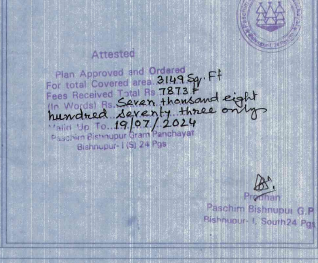 Attested
Plan Approved and Ordered
For total Covered area. 3149 Sq. Ft
Fees Received Total Rs. 7873/-
(In Words) Rs. Seven thousand eight
hundred seventy three only
Valid Up To... 19/07/2024
Paschim Bishnupur Gram Panchayat
Bishnupur-I (S) 24 Pgs
Pradhan
Paschim Bishnupur G.P
Bishnupur-I, South 24 Pgs